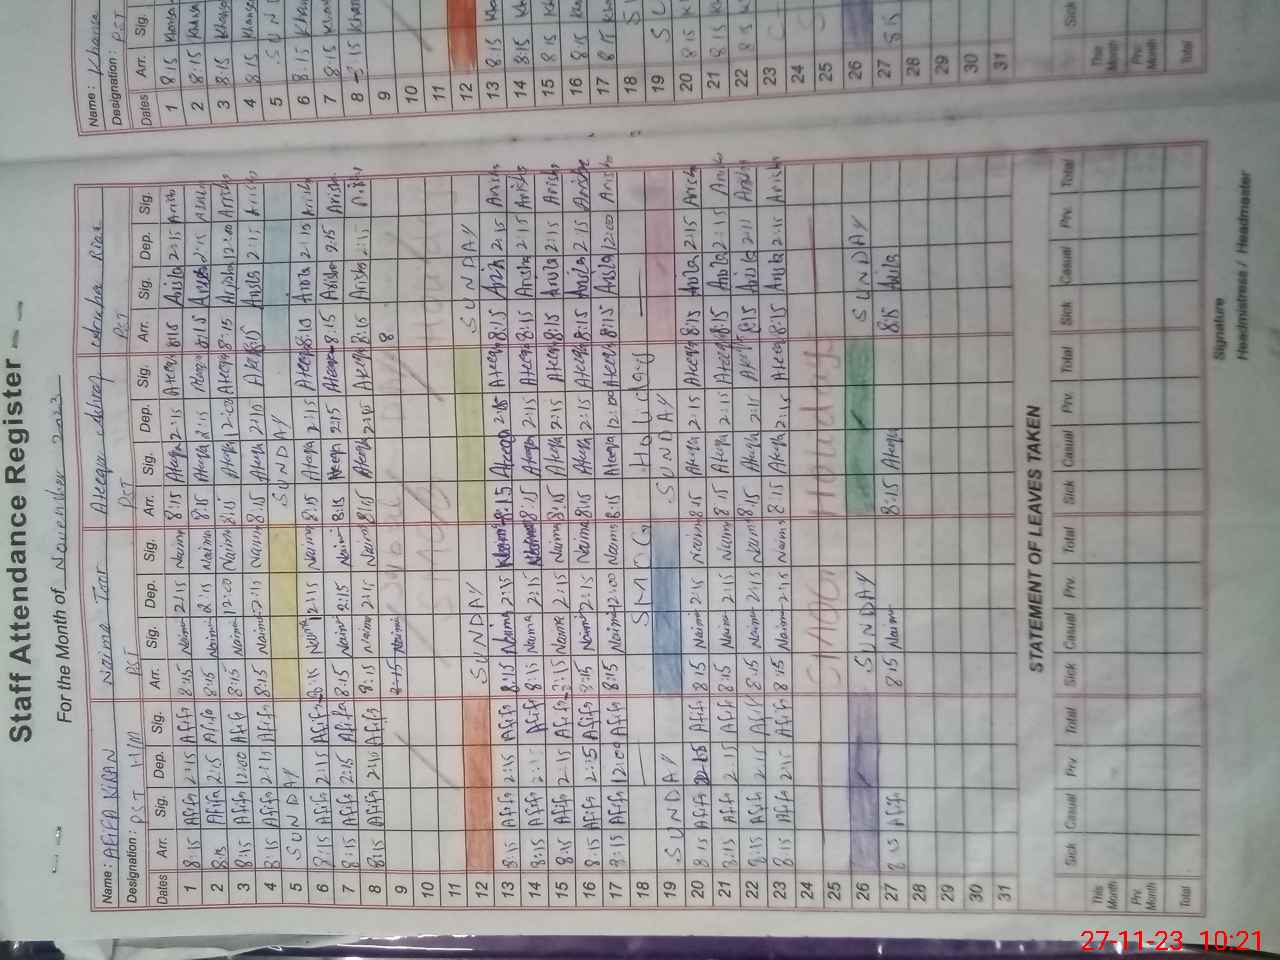 Staff Attendance Register
For the Month of November 2023
Name: AFIFA KIRAN Naima Ateeqa Riaz
Designation: PST H/M PST PST PST
Dates Arr. Sig. Dep. Sig. Arr. Sig. Dep. Sig. Arr. Sig. Dep. Sig. Arr. Sig. Dep. Sig.
1 8:15 Afifa 2:15 Afifa 8:15 Naima 2:15 Naima 8:15 Ateeqa 2:15 Ateeqa 8:15 Arisha 2:15 Arisha
2 8:15 Afifa 2:15 Afifa 8:15 Naima 2:15 Naima 8:15 Ateeqa 2:15 Ateeqa 8:15 Arisha 2:15 Arisha
3 8:15 Afifa 12:00 Afifa 8:15 Naima 12:00 Naima 8:15 Ateeqa 12:00 Ateeqa 8:15 Arisha 12:00 Arisha
4 8:15 Afifa 2:15 Afifa 8:15 Naima 2:15 Naima 8:15 Ateeqa 2:15 Ateeqa 8:15 Arisha 2:15 Arisha
5 SUNDAY SUNDAY
6 8:15 Afifa 2:15 Afifa 8:15 Naima 2:15 Naima 8:15 Ateeqa 2:15 Ateeqa 8:15 Arisha 2:15 Arisha
7 8:15 Afifa 2:15 Afifa 8:15 Naima 2:15 Naima 8:15 Ateeqa 2:15 Ateeqa 8:15 Arisha 2:15 Arisha
8 8:15 Afifa 2:15 Afifa 8:15 Naima 2:15 Naima 8:15 Ateeqa 2:15 Ateeqa 8:15 Arisha 2:15 Arisha
9 8:15 Naima 8
10
11
12 SUNDAY SUNDAY
13 8:15 Afifa 2:15 Afifa 8:15 Naima 2:15 Naima 8:15 Ateeqa 2:15 Ateeqa 8:15 Arisha 2:15 Arisha
14 8:15 Afifa 2:15 Afifa 8:15 Naima 2:15 Naima 8:15 Ateeqa 2:15 Ateeqa 8:15 Arisha 2:15 Arisha
15 8:15 Afifa 2:15 Afifa 8:15 Naima 2:15 Naima 8:15 Ateeqa 2:15 Ateeqa 8:15 Arisha 2:15 Arisha
16 8:15 Afifa 2:15 Afifa 8:15 Naima 2:15 Naima 8:15 Ateeqa 2:15 Ateeqa 8:15 Arisha 2:15 Arisha
17 8:15 Afifa 12:00 Afifa 8:15 Naima 12:00 Naima 8:15 Ateeqa 12:00 Ateeqa 8:15 Arisha 12:00 Arisha
18 SMOG Holiday
19 SUNDAY SUNDAY
20 8:15 Afifa 2:15 Afifa 8:15 Naima 2:15 Naima 8:15 Ateeqa 2:15 Ateeqa 8:15 Arisha 2:15 Arisha
21 8:15 Afifa 2:15 Afifa 8:15 Naima 2:15 Naima 8:15 Ateeqa 2:15 Ateeqa 8:15 Arisha 2:15 Arisha
22 8:15 Afifa 2:15 Afifa 8:15 Naima 2:15 Naima 8:15 Ateeqa 2:15 Ateeqa 8:15 Arisha 2:11 Arisha
23 8:15 Afifa 2:15 Afifa 8:15 Naima 2:15 Naima 8:15 Ateeqa 2:15 Ateeqa 8:15 Arisha 2:15 Arisha
24
25 SMOG Holiday
26 SUNDAY SUNDAY
27 8:15 Afifa 8:15 Naima 8:15 Ateeqa 8:15 Arisha
28
29
30
31
STATEMENT OF LEAVES TAKEN
Sick Casual Prv. Total Sick Casual Prv. Total Sick Casual Prv. Total Sick Casual Prv. Total
This Month
Prv. Month
Total
Signature
Headmistress / Headmaster
Name: Khansa
Designation: PST
Dates Arr. Sig.
1 8:15 Khansa
2 8:15 Khansa
3 8:15 Khansa
4 8:15 Khansa
5 SUND
6 8:15 Khansa
7 8:15 Khansa
8 8:15 Khansa
9
10
11
12
13 8:15
14 8:15
15 8:15
16 8:15
17 8:15
18
19
20 8:15
21 8:15
22 8:15
23
24
25
26
27 8:15
28
29
30
31
Sick
This Month
Prv. Month
Total
27-11-23 10:21